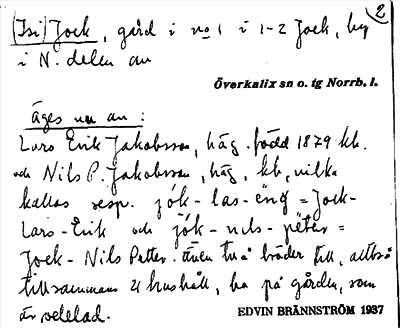 2
(Isi)Jock, gård i no 1 i 1-2 Jock, by
i N. delen av
Överkalix sn o. tg Norrb. l.
äges nu av:
Lars Erik Jakobsson, häg. född 1879 kb.
och Nils P. Jakobsson, häg, kb, vilka
kallas resp. jók-las-ēng = Jock-
Lars-Erik och jók-nils-pēter =
Jock-Nils Petter. Även två bröder till, alltså
tillsammans 4 hushåll, bo på gården, som
är odelad.
EDVIN BRÄNNSTRÖM 1937